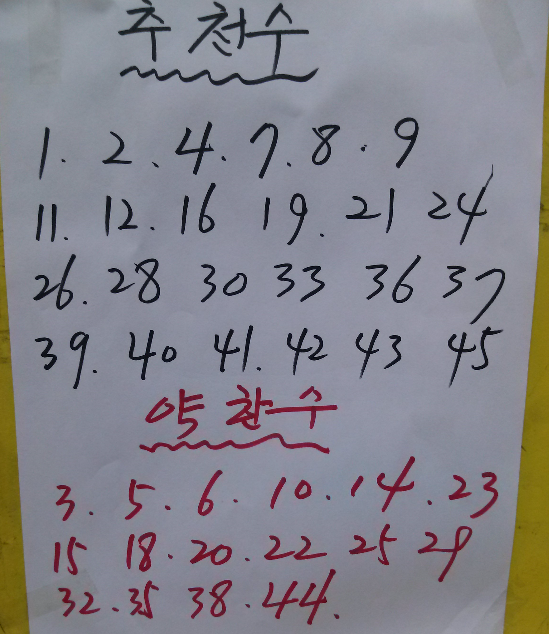 추천수
1. 2. 4. 7. 8. 9
11. 12. 16 19. 21 24
26. 28 30 33 36 37
39. 40 41. 42 43 45
약한수
3. 5. 6. 10. 14. 23
15 18. 20. 22 25 29
32. 35 38. 44.